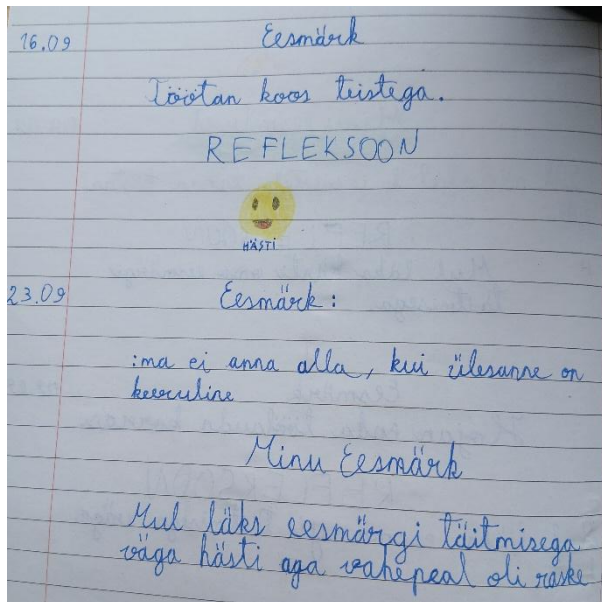 16.09 Eesmärk
Töötan koos teistega.
REFLEKSOON
HÄSTI
23.09 Eesmärk:
:ma ei anna alla, kui ülesanne on
keeruline
Minu Eesmärk
Mul läks eesmärgi täitmisega
väga hästi aga vahepeal oli raske